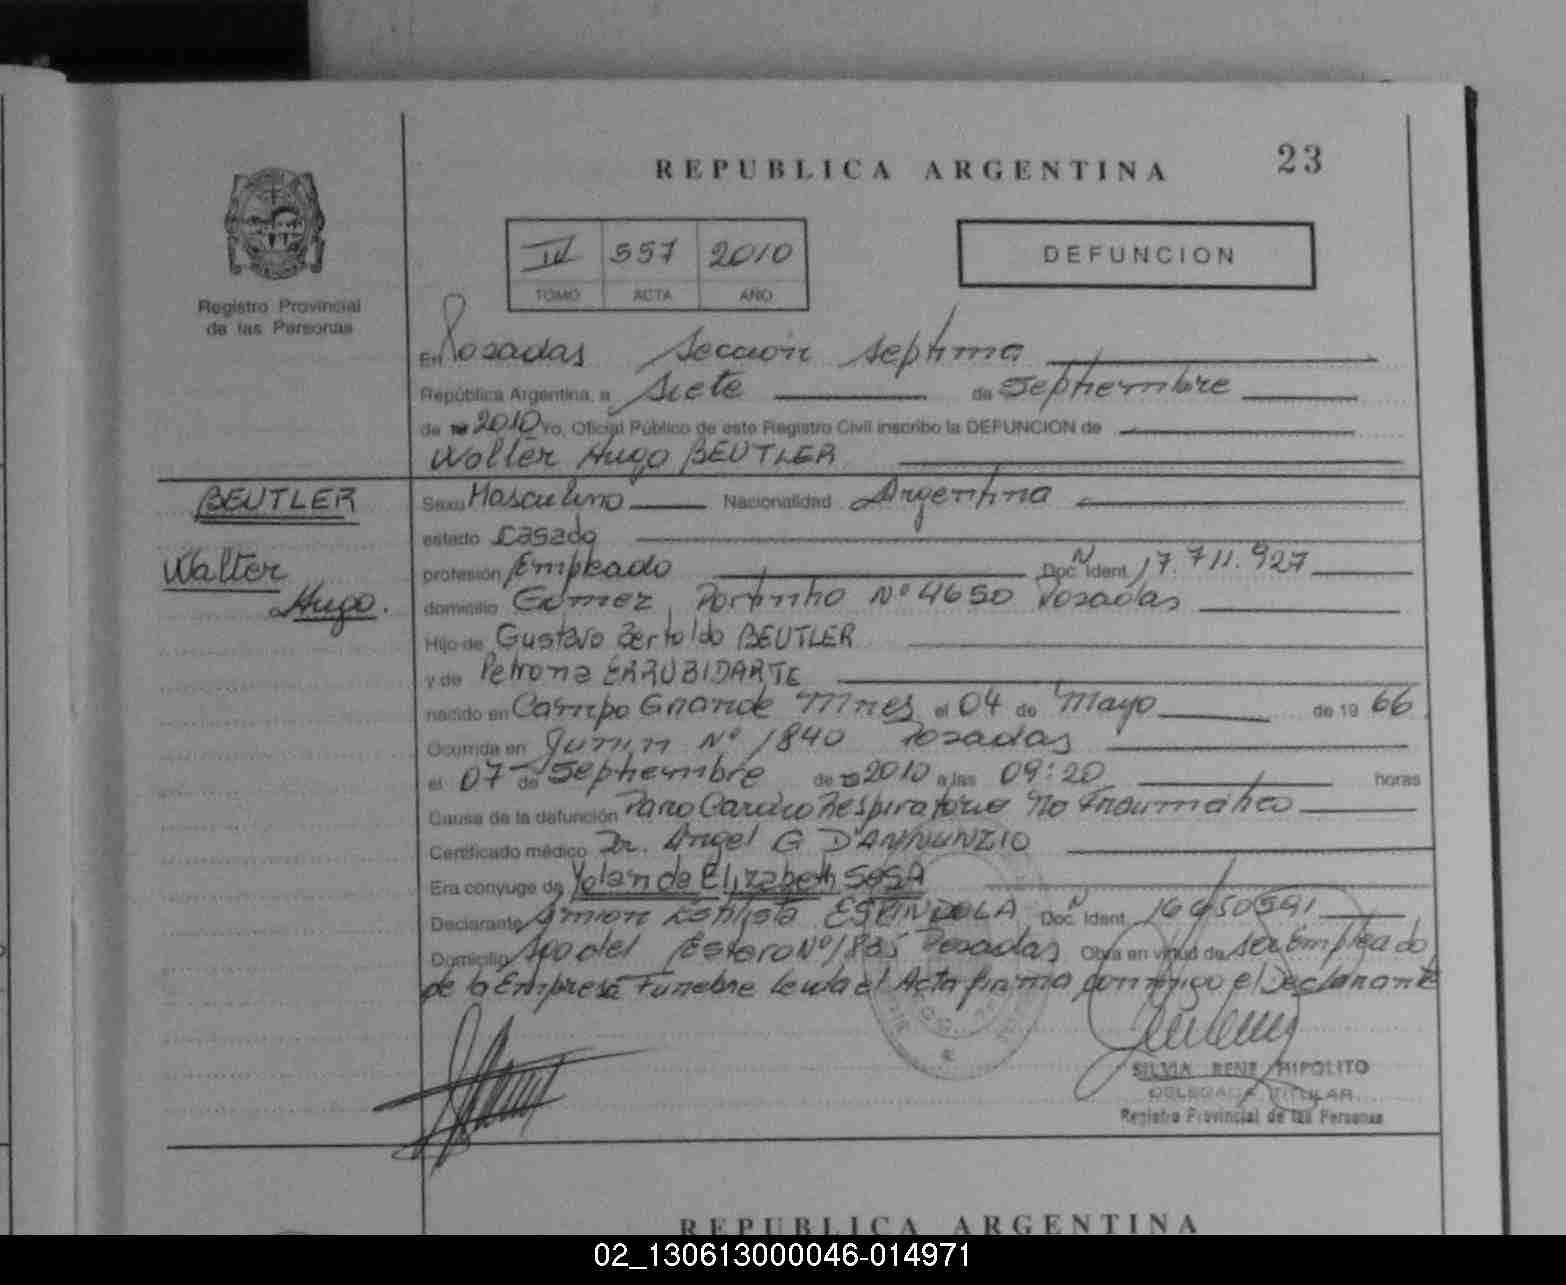 REPUBLICA ARGENTINA 23
Registro Provincial
de las Personas
IV 557 2010
TOMO ACTA AÑO
DEFUNCION
En Posadas Sección Septima
República Argentina, a Siete de Septiembre
de 2010 Yo, Oficial Público de este Registro Civil inscribo la DEFUNCION de
Walter Hugo BEUTLER
BEUTLER
Walter
Hugo.
Sexo Masculino Nacionalidad Argentina
estado Casado
profesión Empleado Doc. N Ident. 17.711.927
domicilio Gomez Portinho Nº 4650 Posadas
Hijo de Gustavo Bertoldo BEUTLER
y de Petrona ERRUBIDARTE
nacido en Campo Grande Mnes el 04 de Mayo de 19 66
Ocurrida en Junin Nº 1840 Posadas
el 07 de Septiembre de 2010 a las 09:20 horas
Causa de la defunción Paro Cardio Respiratorio No Traumático
Certificado médico Dr. Angel G D'ANNUNZIO
Era cónyuge de Yolanda Elizabeth SOSA
Declarante ESPINDOLA Doc. N Ident.
Domicilio Sgo del Estero Nº Posadas Obra en virtud de ser Empleado
de la Empresa Funebre Leida el Acta firma conmigo el Declarante
SILVIA RENE HIPOLITO
DELEGADA TITULAR
Registro Provincial de las Personas
REPUBLICA ARGENTINA
02_130613000046-014971